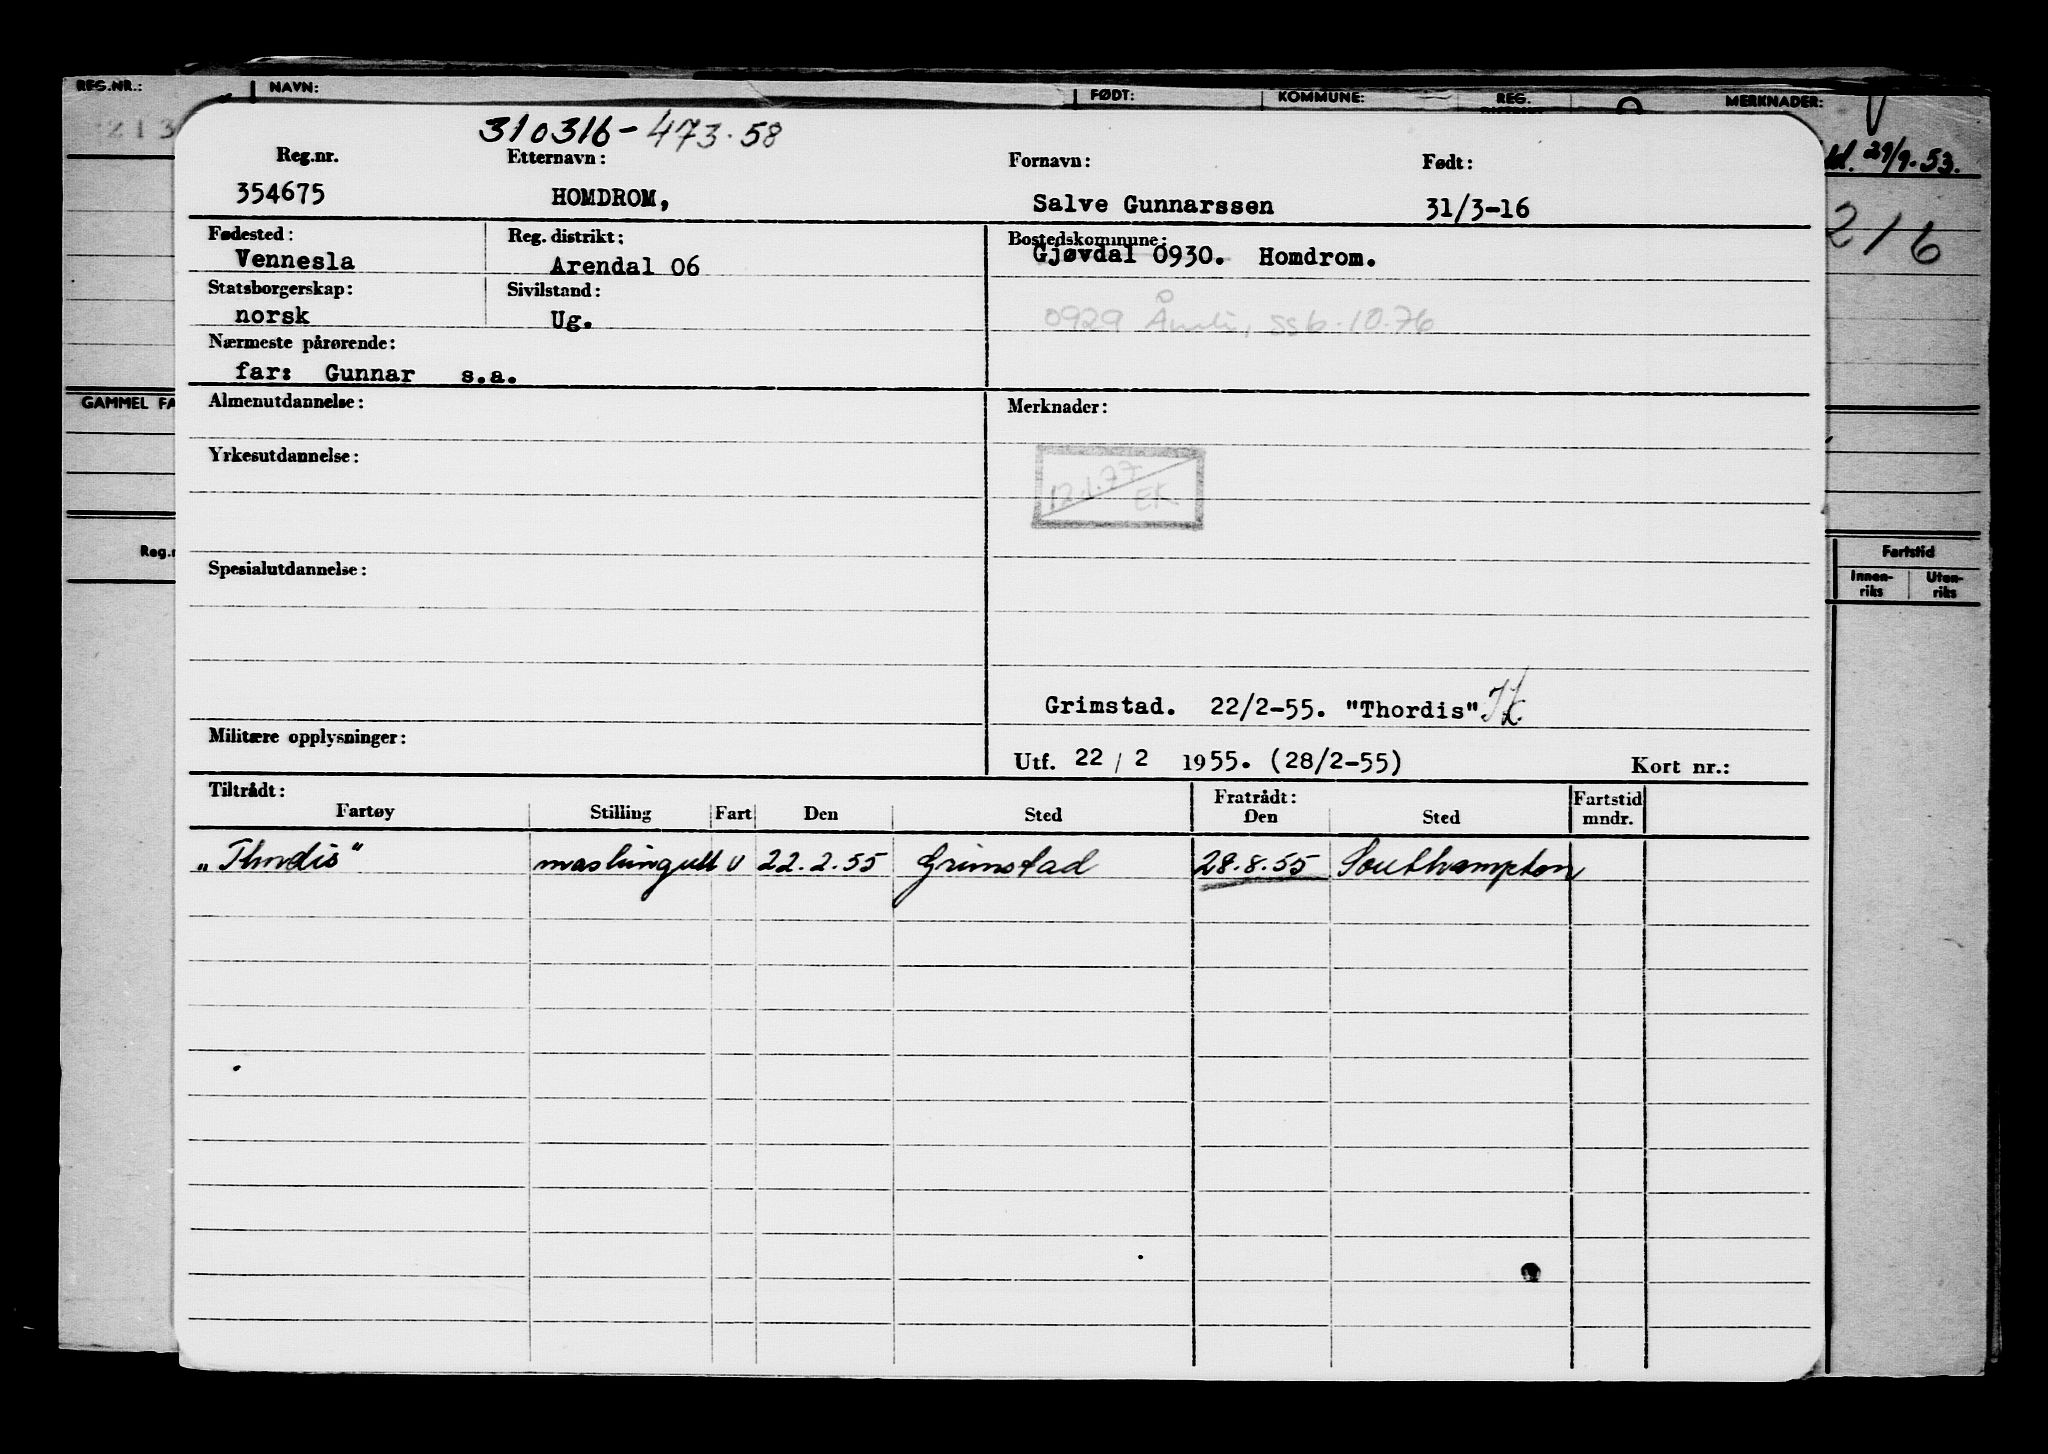 REG.NR.: NAVN: FØDT: KOMMUNE: REG. MERKNADER:
213
29/9-53.
216
GAMMEL FA
Reg.n
Fartstid
Innen-riks Uten-riks
310316-473.58
Reg.nr. Etternavn: Fornavn: Født:
354675 HOMDROM, Salve Gunnarssen 31/3-16
Fødested: Reg. distrikt: Bostedskommune:
Vennesla Arendal 06 Gjøvdal 0930. Homdrom.
Statsborgerskap: Sivilstand:
norsk Ug. 0929 Åmli, ssb.10.76
Nærmeste pårørende:
far: Gunnar s.a.
Almenutdannelse: Merknader:
Yrkesutdannelse:
12.1.77 EK.
Spesialutdannelse:
Grimstad. 22/2-55. "Thordis"
Militære opplysninger:
Utf. 22 / 2 1955. (28/2-55) Kort nr.:
Tiltrådt: Fratrådt: Fartstid
Fartøy Stilling Fart Den Sted Den Sted mndr.
„Thordis" maskingutt U 22.2.55 Grimstad 28.8.55 Southampton